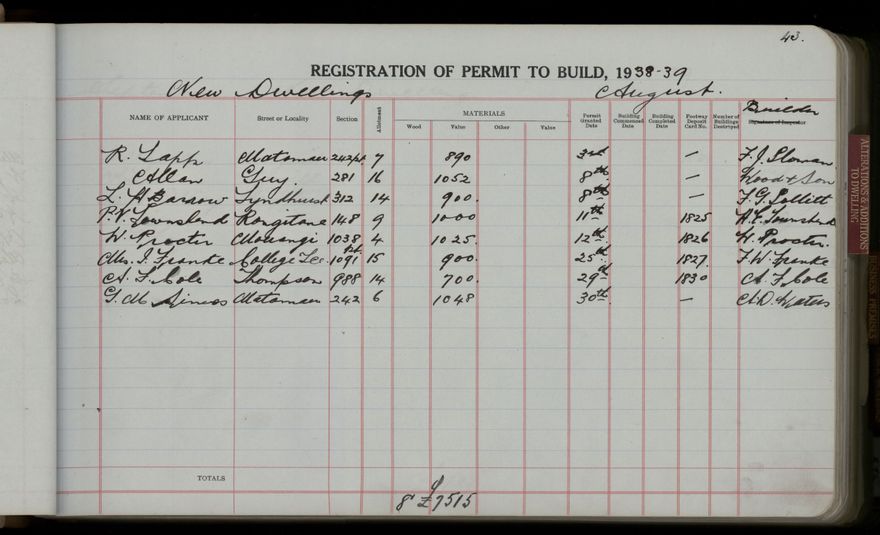 43.
REGISTRATION OF PERMIT TO BUILD, 1938-39
New Dwellings August.
NAME OF APPLICANT Street or Locality Section Allotment MATERIALS Wood Value Other Value Permit Granted Date Building Commenced Date Building Completed Date Footway Deposit Card No. Number of Buildings Destroyed Builder Signature of Inspector
R. Lapp Matamau 242pt 7 890 3rd — F. J. Sloman
Allan Guy 281 16 1052 8th — Wood & Son
L. H Barrow Lyndhurst 312 14 900. 8th — F. G. Follitt
P. V. Townshend Rongitane 148 9 1000 11th 1825 A. E. Townshend
W. Procter Mouangi 1038 4 1025. 12th 1826 W. Procter.
Mrs. I. Franke College 1091 15 900. 25th 1827 F. W. Franke
A. F. Cole Thompson 988 14 700. 29th 1830 A. F. Cole
G. M Matamau 242 6 1048 30th — A. D. Waters
TOTALS
8 £7515
ALTERATIONS & ADDITIONS TO DWELLING
BUSINESS PREMISES